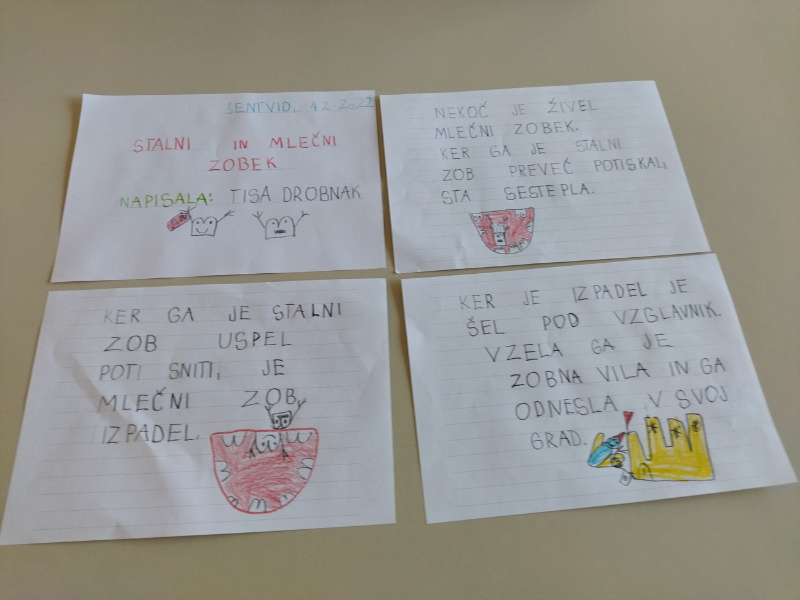 ŠENTVID, 4.2.2022
STALNI IN MLEČNI
ZOBEK
NAPISALA: TISA DROBNAK
NEKOČ JE ŽIVEL
MLEČNI ZOBEK.
KER GA JE STALNI
ZOB PREVEČ POTISKAL,
STA SE STEPLA.
KER GA JE STALNI
ZOB USPEL
POTISNITI, JE
MLEČNI ZOB
IZPADEL.
KER JE IZPADEL JE
ŠEL POD VZGLAVNIK.
VZELA GA JE
ZOBNA VILA IN GA
ODNESLA V SVOJ
GRAD.